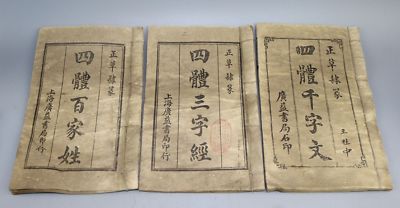 正草隸篆
四體百家姓
上海廣益書局印行
正草隸篆
四體三字經
上海廣益書局印行
正草隸篆
四體千字文
廣益書局石印